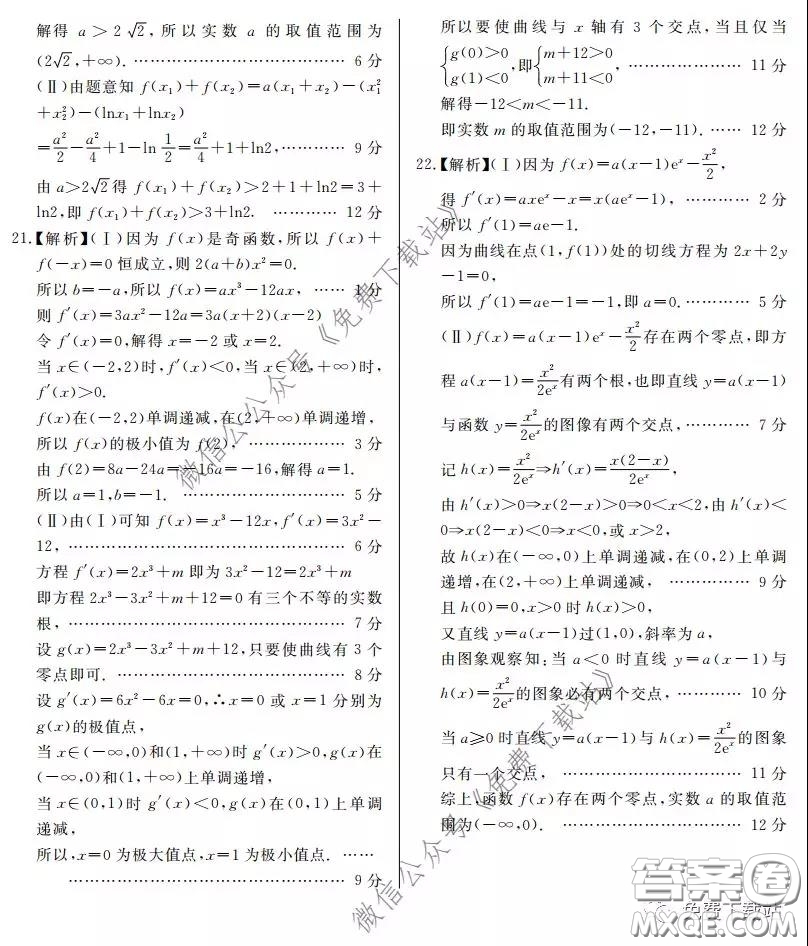 解得 a＞2√2,所以实数 a 的取值范围为
(2√2,+∞). …………………………… 6 分
(Ⅱ)由题意知 f(x₁)+f(x₂)=a(x₁+x₂)-(x₁²
+x₂²)-(lnx₁+lnx₂)
=a²/2-a²/4+1-ln 1/2=a²/4+1+ln2,………… 9 分
由 a＞2√2得 f(x₁)+f(x₂)＞2+1+ln2=3+
ln2,即 f(x₁)+f(x₂)＞3+ln2. ………… 12 分
21.【解析】(Ⅰ)因为 f(x)是奇函数,所以 f(x)+
f(-x)=0 恒成立,则 2(a+b)x²=0.
所以 b=-a,所以 f(x)=ax³-12ax, …… 1 分
则 f′(x)=3ax²-12a=3a(x+2)(x-2)
令 f′(x)=0,解得 x=-2 或 x=2.
当 x∈(-2,2)时,f′(x)＜0,当 x∈(2,+∞)时,
f′(x)＞0.
f(x)在(-2,2)单调递减,在(2,+∞)单调递增,
所以 f(x)的极小值为 f(2), ……………… 3 分
由 f(2)=8a-24a=-16a=-16,解得 a=1.
所以 a=1,b=-1. ………………………… 5 分
(Ⅱ)由(Ⅰ)可知 f(x)=x³-12x,f′(x)=3x²-
12,…………………………………………… 6 分
方程 f′(x)=2x³+m 即为 3x²-12=2x³+m
即方程 2x³-3x²+m+12=0 有三个不等的实数
根,…………………………………………… 7 分
设 g(x)=2x³-3x²+m+12,只要使曲线有 3 个
零点即可. ………………………………… 8 分
设 g′(x)=6x²-6x=0,∴x=0 或 x=1 分别为
g(x)的极值点,
当 x∈(-∞,0)和(1,+∞)时 g′(x)＞0,g(x)在
(-∞,0)和(1,+∞)上单调递增,
当 x∈(0,1)时 g′(x)＜0,g(x)在(0,1)上单调
递减,
所以,x=0 为极大值点,x=1 为极小值点. ……
…………………………………………… 9 分
所以要使曲线与 x 轴有 3 个交点,当且仅当
{g(0)＞0 g(1)＜0,即{m+12＞0 m+11＜0, ………………… 11 分
解得-12＜m＜-11.
即实数 m 的取值范围为(-12,-11). …… 12 分
22.【解析】(Ⅰ)因为 f(x)=a(x-1)eˣ-x²/2,
得 f′(x)=axeˣ-x=x(aeˣ-1), ………… 2 分
所以 f′(1)=ae-1.
因为曲线在点(1,f(1))处的切线方程为 2x+2y
-1=0,
所以 f′(1)=ae-1=-1,即 a=0. ………… 5 分
(Ⅱ)f(x)=a(x-1)eˣ-x²/2存在两个零点,即方
程 a(x-1)=x²/2eˣ有两个根,也即直线 y=a(x-1)
与函数 y=x²/2eˣ的图像有两个交点,………… 7 分
记 h(x)=x²/2eˣ⇒h′(x)=x(2-x)/2eˣ,
由 h′(x)＞0⇒x(2-x)＞0⇒0＜x＜2,由 h′(x)＜
0⇒x(2-x)＜0⇒x＜0,或 x＞2,
故 h(x)在(-∞,0)上单调递减,在(0,2)上单调
递增,在(2,+∞)上单调递减, …………… 9 分
且 h(0)=0,x＞0 时 h(x)＞0,
又直线 y=a(x-1)过(1,0),斜率为 a,
由图象观察知:当 a＜0 时直线 y=a(x-1)与
h(x)=x²/2eˣ的图象必有两个交点,………… 10 分
当 a≥0 时直线 y=a(x-1)与 h(x)=x²/2eˣ的图象
只有一个交点, ………………………… 11 分
综上,函数 f(x)存在两个零点,实数 a 的取值范
围为(-∞,0). ………………………… 12 分
微信公众号《免费下载站》
微信公众号《免费下载站》
答案圈
免费下载站